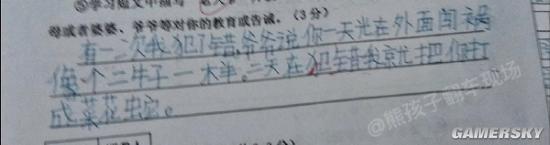 ⑤学习短文中描写
母或者婆婆、爷爷等对你的教育或告诫。(3分)
有一次我犯了错爷爷说你一天光在外面闯祸
像个二牛子一样。二天在犯错我就把你打
成菜花虫它。
@熊孩子翻车现场
GAMERSKY